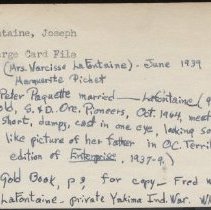 ntaine, Joseph
arge Card File
(Mrs. Narcisse LaFontaine) - June 1939
Marguerite Pichet
Peter Paquette married — LaFontaine (g
old, S. & D. Ore. Pioneers, Oct, 1964, meet
short, dumpy, cast in one eye, looking so
like picture of her father in O.C. Territ
edition of Enterprise, 1937-9.)
Gold Book, p 3, for copy - Fred W
LaFontaine - private Yakima Ind. War. W/